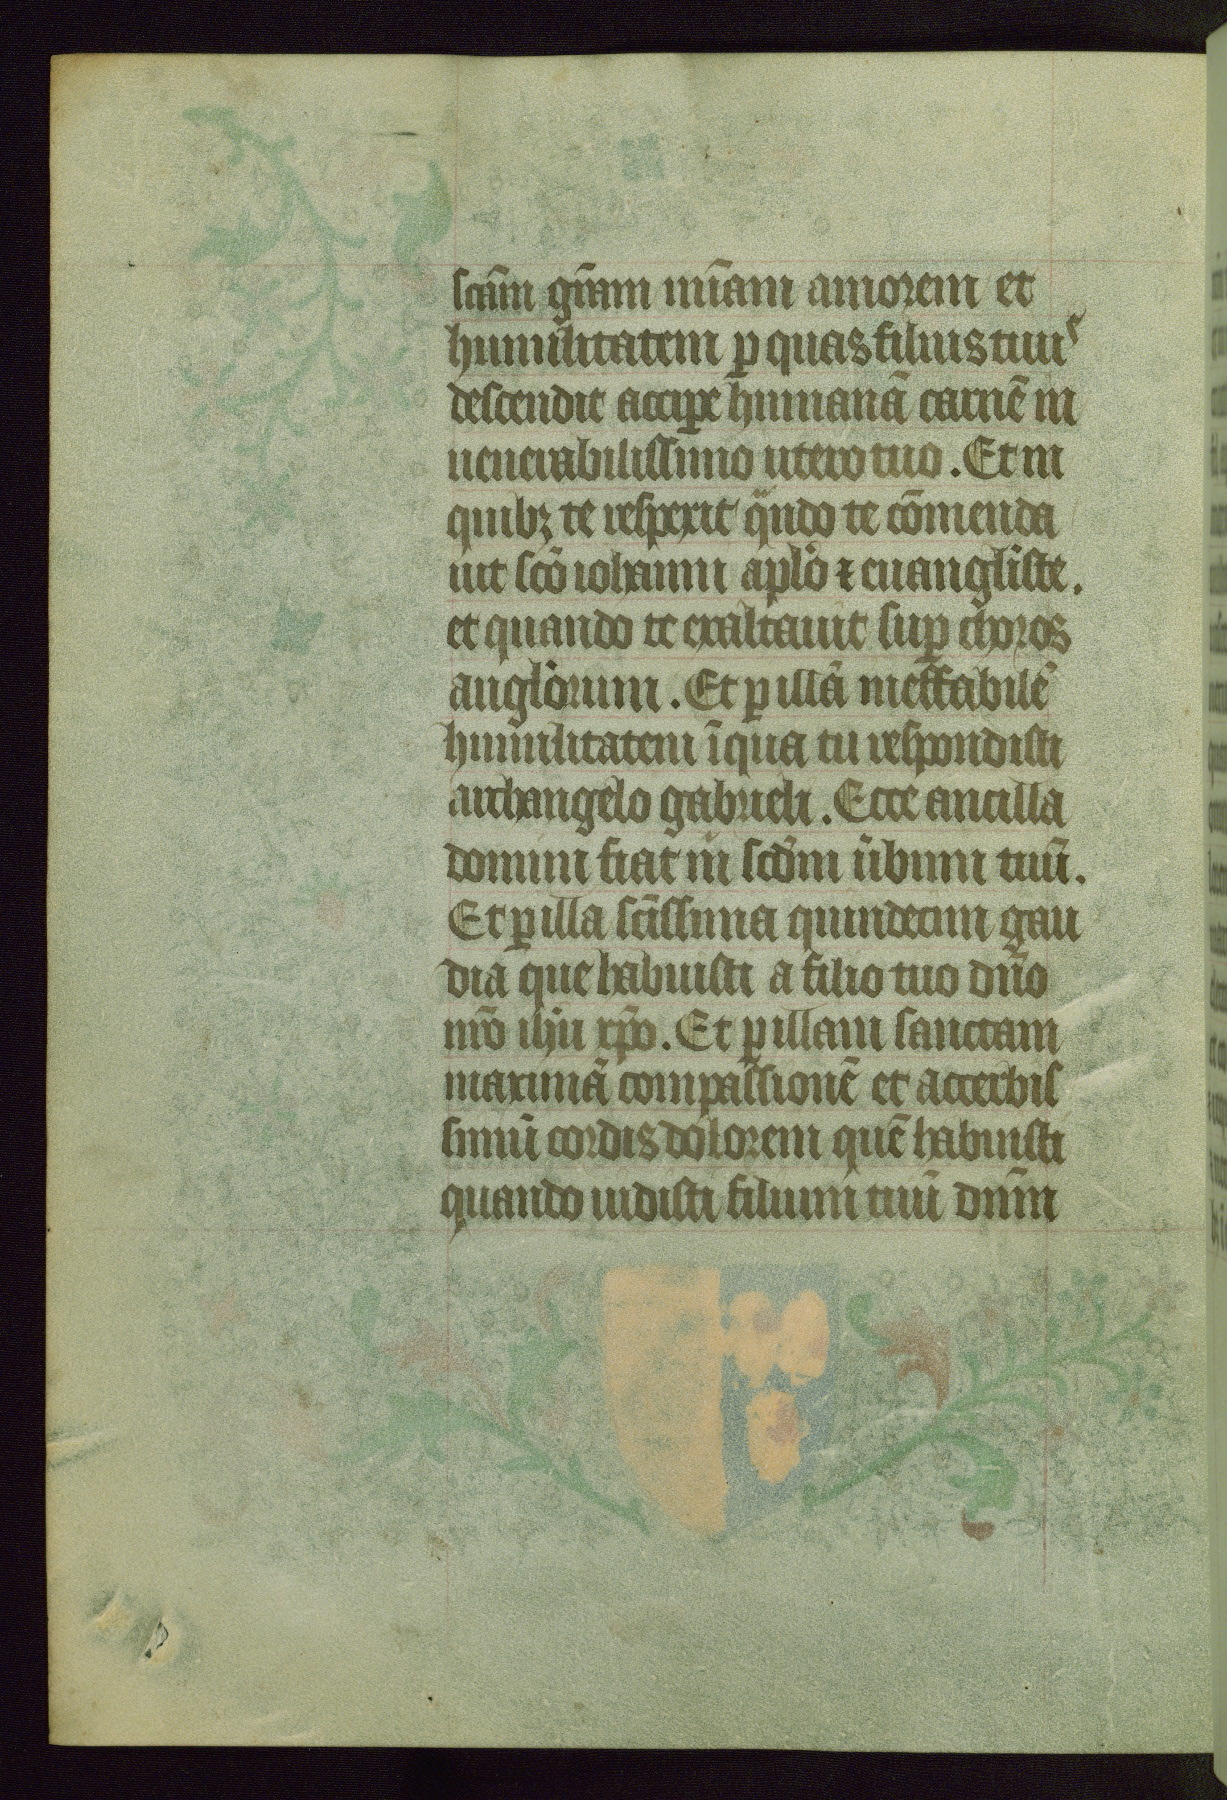 scãm gr̃am mĩam amorem et
humilitatem ꝑ quas filius tuus
descendit accipe humanã carnẽ in
uenerabilissimo utero tuo . Et in
quibꝫ te respexit qñdo te cõmenda
uit scõ iohanni apl̃o ⁊ euangl̃iste .
et quando te exaltauit suꝑ choros
angl̃orum . Et ꝑ illã ineffabilẽ
humilitatem ĩ qua tu respondisti
archangelo gabrieli . Ecce ancilla
domini fiat m̃ scd̃m ũbum tuũ .
Et ꝑ illa scĩssima quindecim gau
dia que habuisti a filio tuo dño
nr̃o ihũ xp̃o . Et ꝑ illam sanctam
maximã compassionẽ et accerbis
simũ cordis dolorem quẽ habuisti
quando uidisti filium tuũ dnm̃